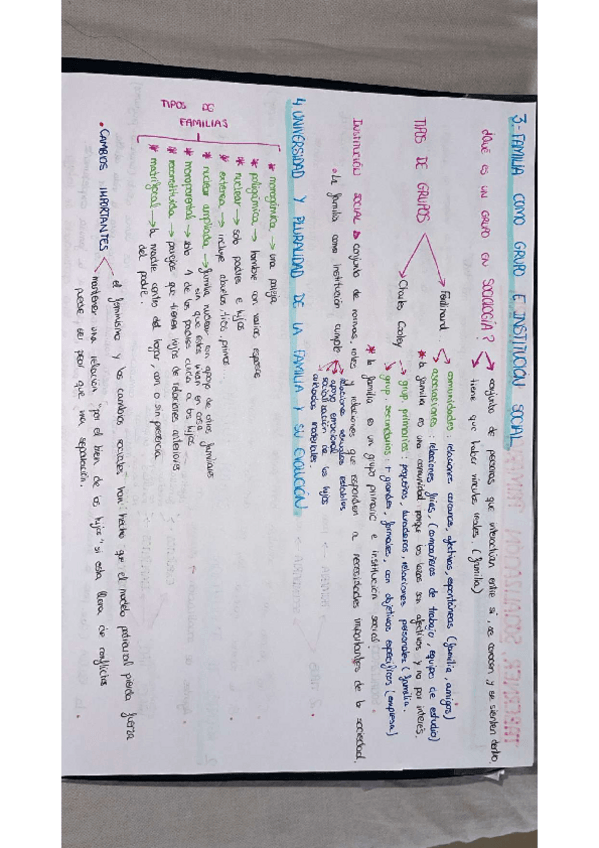 3- FAMILIA COMO GRUPO E INSTITUCIÓN SOCIAL
¿QUE ES UN GRUPO EN SOCIOLOGÍA? → conjunto de personas que interactúan entre sí, se conocen y se sienten dentro.
→ tiene que haber vínculos reales (familia)
TIPOS DE GRUPOS
Ferdinand
→ comunidades: relaciones cercanas, afectivas, espontáneas, (familia, amigos)
→ asociaciones: relaciones frías, (compañeros de trabajo, equipo de estudio)
* la familia es una comunidad porque los lazos son afectivos y no por interés.
Charles Cooley
→ grup. primarios: pequeños, duraderos, relaciones personales (familia.
→ grup. secundarios: + grandes, formales, con objetivos específicos (empresa)
* la familia es un grupo primario e institución social
INSTITUCIÓN SOCIAL → conjunto de normas, roles y relaciones que responden a necesidades importantes de la sociedad.
• La familia como institución cumple → relaciones sexuales estables
apoyo emocional
socialización de los hijos
cuidados materiales.
4. UNIVERSIDAD Y PLURALIDAD DE LA FAMILIA Y SU EVOLUCIÓN.
TIPOS DE
FAMILIAS
* monogámica → una pareja
* poligámica → hombre con varias esposas
* nuclear → solo padres e hijos
* extensa → incluye abuelos, tíos, primos
* nuclear ampliada → familia nuclear con apoyo de otros familiares
sin que estos vivan en casa
* monoparental → solo 1 de los padres cuida a los hijos
* reconstituida → parejas que tienen hijos de relaciones anteriores
* matrifocal → la madre centro del hogar, con o sin presencia
del padre.
• CAMBIOS IMPORTANTES
el feminismo y los cambios sociales han hecho que el modelo patriarcal pierda fuerza
mantener una relación "por el bien de los hijos" si esta llena de conflictos
puede ser peor que una separación.